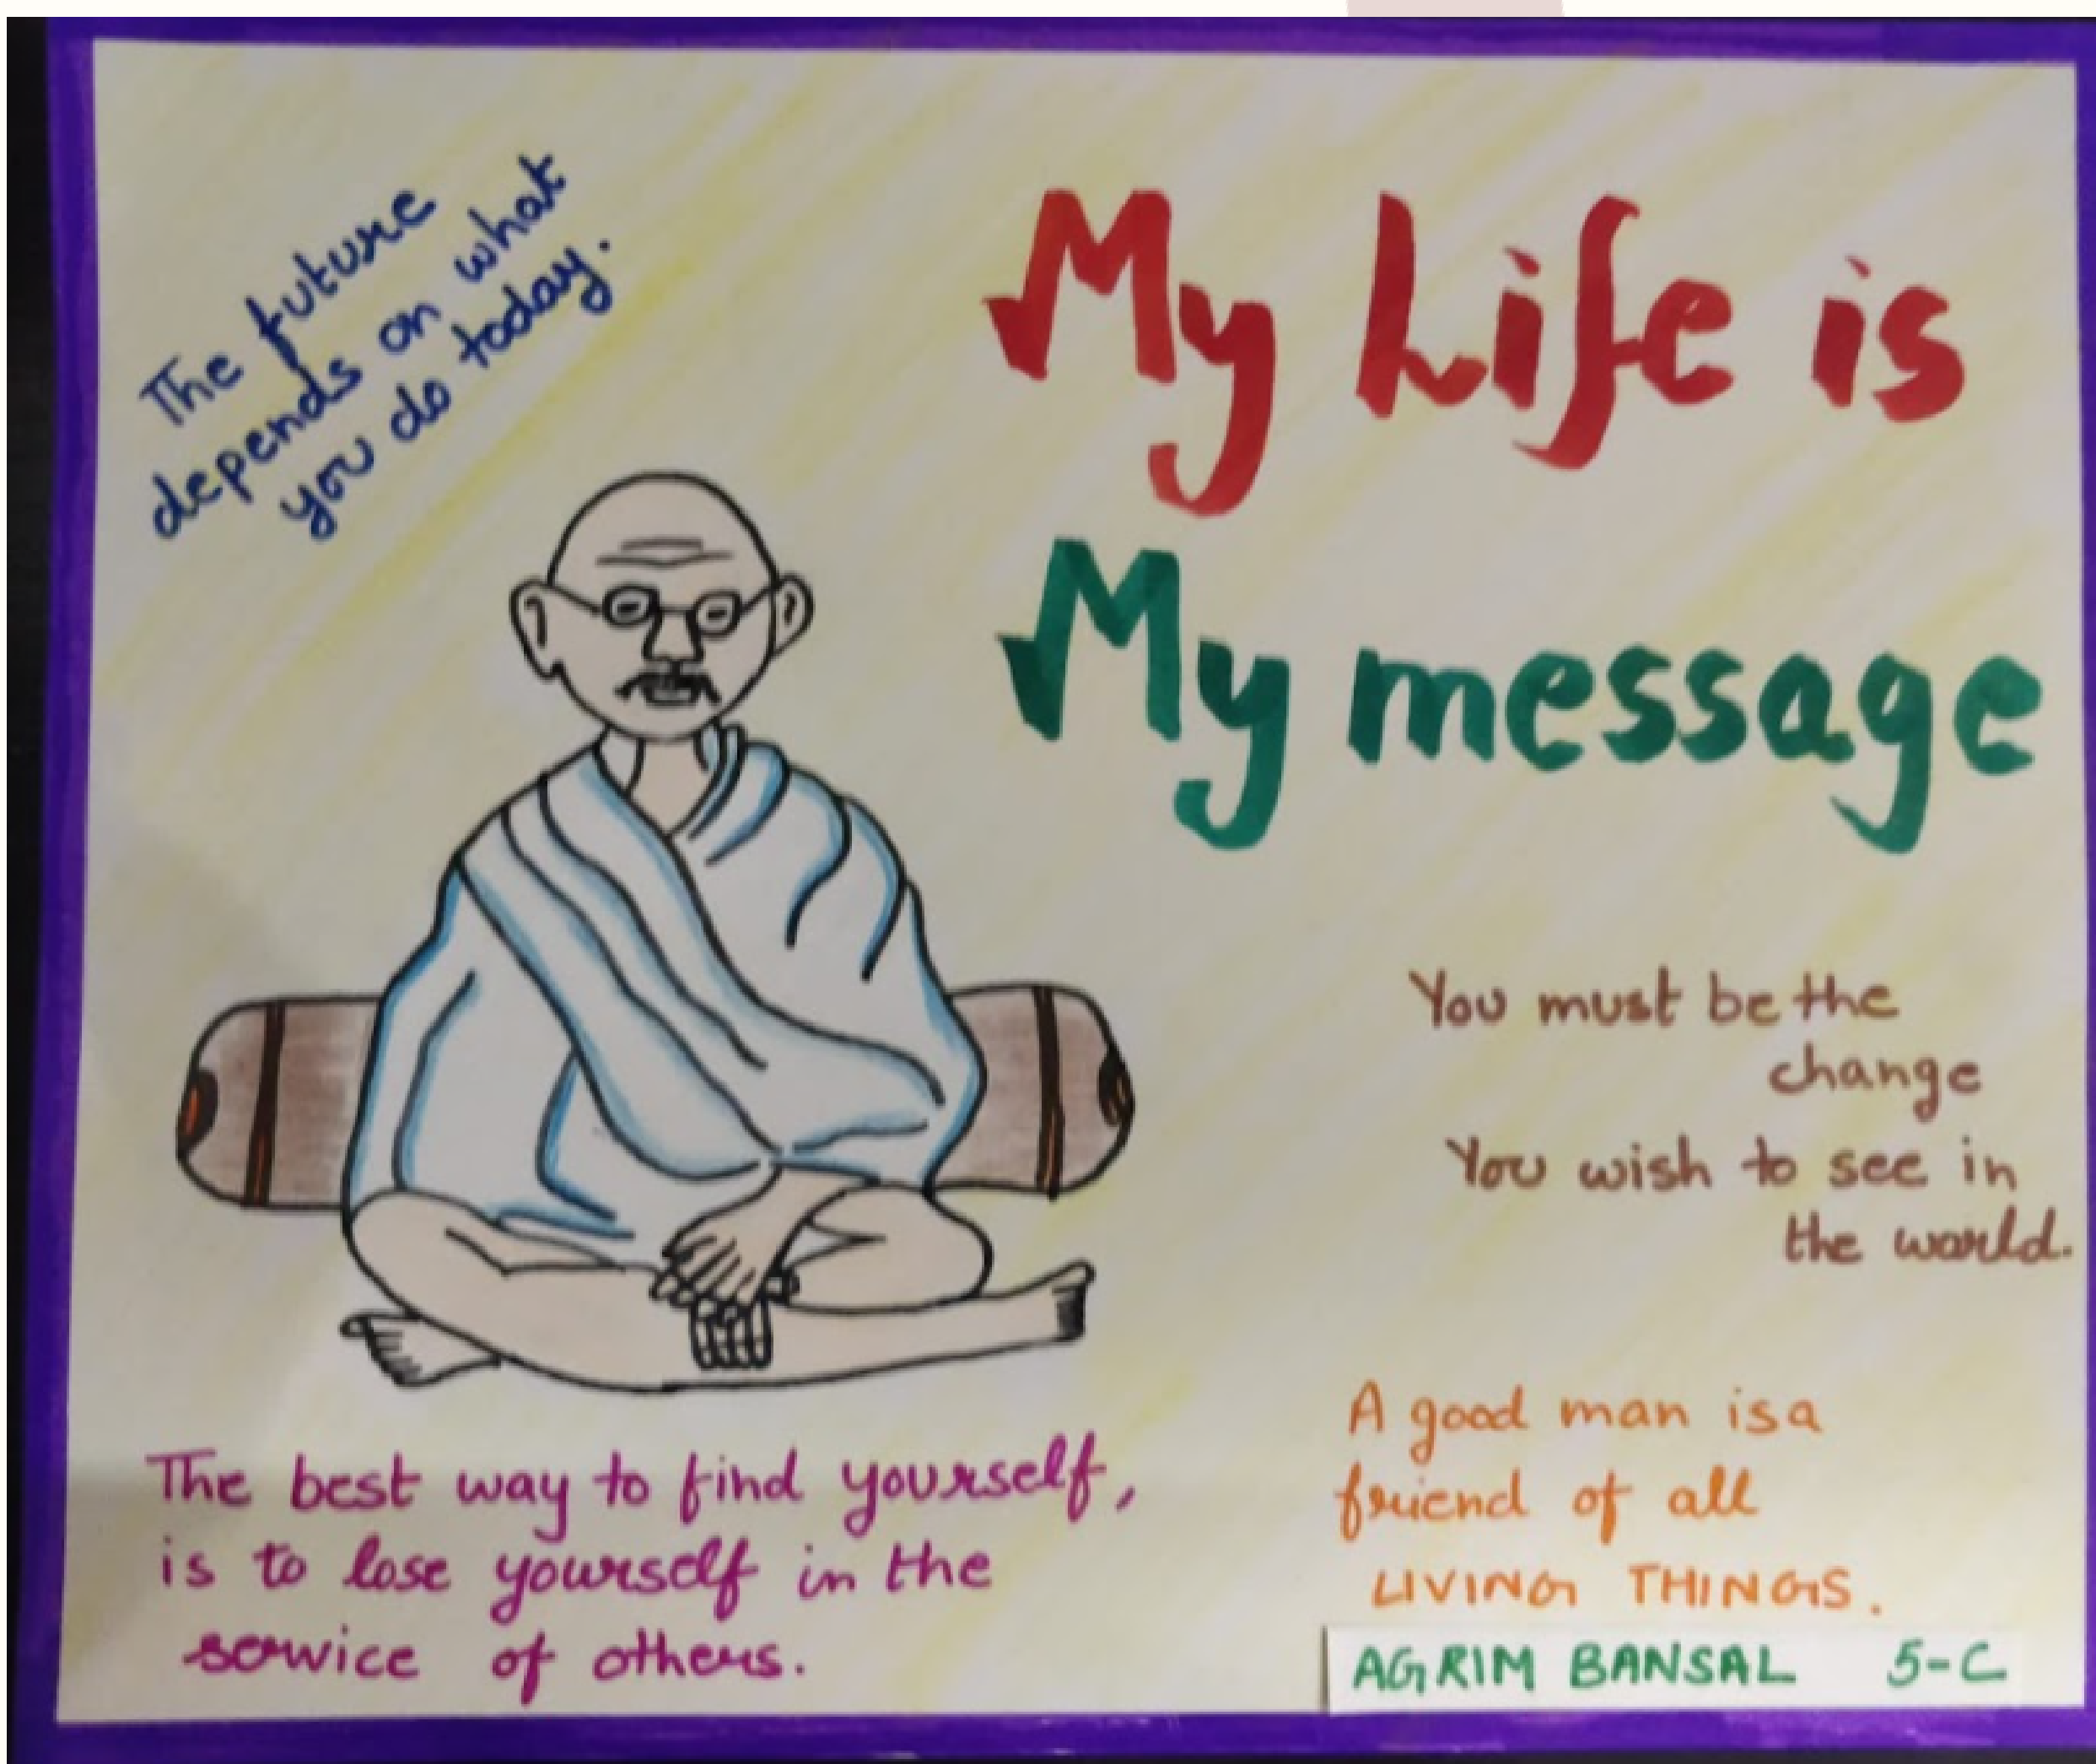 The future
depends on what
you do today.
My Life is
My message
You must be the
change
You wish to see in
the world.
The best way to find yourself,
is to lose yourself in the
service of others.
A good man is a
friend of all
LIVING THINGS.
AGRIM BANSAL 5-C